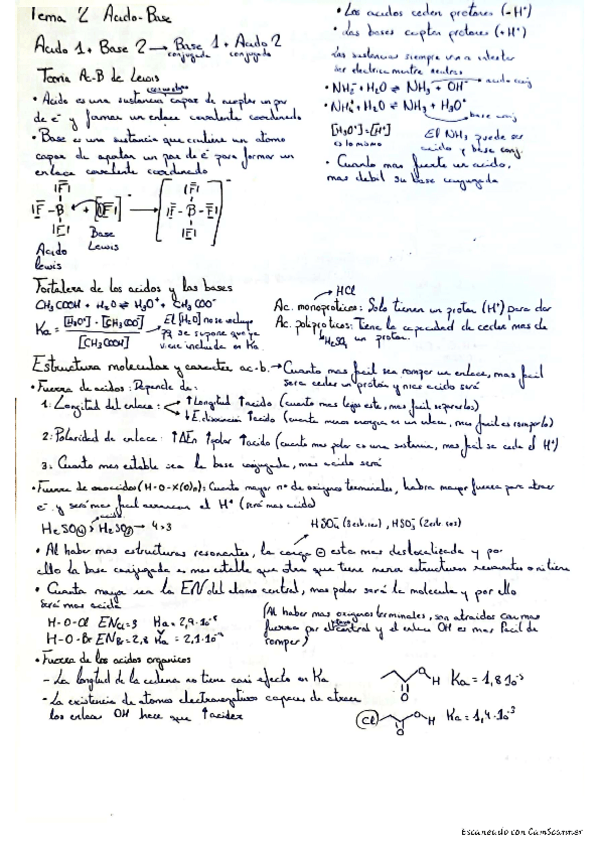 Tema 2 Acido-Base
Acido 1 + Base 2 → Base 1 + Acido 2
conjugada conjugado
Teoria Ac-B de Lewis
• Acido es una sustancia capaz de aceptar un par
de e⁻ y formar un enlace covalente coordinado
• Base es una sustancia que contiene un atomo
capaz de aportar un par de e⁻ para formar un
enlace covalente coordinado
Acido
lewis
Base
Lewis
• Los acidos ceden protones (-H⁺)
• Las bases captan protones (+H⁺)
Las sustancias siempre van a intentar
ser electricamente neutras
• NH₂⁻ + H₂O ⇌ NH₃ + OH⁻ acido conj
• NH₄⁺ + H₂O ⇌ NH₃ + H₃O⁺ base conj
[H₃O⁺] = [H⁺]
es lo mismo
El NH₃ puede ser
acido y base conj.
• Cuanto mas fuerte un acido,
mas debil su base conjugada
Fortaleza de los acidos y las bases
CH₃COOH + H₂O ⇌ H₃O⁺ + CH₃COO⁻
Ka = [H₃O⁺]·[CH₃COO⁻] / [CH₃COOH]
El [H₂O] no se incluye
pq se supone que ya
viene incluida en Ka
HCl
Ac. monoproticos: Solo tienen un proton (H⁺) para dar
Ac. poliproticos: Tiene la capacidad de ceder mas de
H₂SO₄ un proton.
Estructura molecular y caracter ac-b. → Cuanto mas facil sea romper un enlace, mas facil
sera ceder un protón y mas acido será
• Fuerza de acidos: Depende de:
1: Longitud del enlace: ↑Longitud ↑acido (cuanto mas lejos este, mas facil separarlos)
↓E. disociacion ↑acido (cuanta menos energia en un enlace, mas facil es romperlo)
2: Polaridad de enlace: ↑ΔEn ↑polar ↑acido (cuanto mas polar es una sustancia, mas facil se cede el H⁺)
3: Cuanto mas estable sea la base conjugada, mas acido será
• Fuerza de oxoacidos (H-O-X(O)n): Cuanto mayor nº de oxigenos terminales, habra mayor fuerza para atraer
e⁻ y será mas facil arrancar el H⁺ (será mas acido)
H₂SO₄ > H₂SO₃ → 4 > 3
acido
HSO₄⁻ (3 estruc.), HSO₃⁻ (2 estruc.)
• Al haber mas estructuras resonantes, la carga ⊖ esta mas deslocalizada y por
ello la base conjugada es mas estable que otra que tiene menos estructuras resonantes o ni tiene
• Cuanto mayor sea la EN del atomo central, mas polar será la molecula y por ello
será mas acida
H-O-Cl EN Cl=3 Ka = 2,9·10⁻⁸
H-O-Br EN Br=2,8 Ka = 2,1·10⁻⁹
(Al haber mas oxigenos terminales, son atraidos con mas
fuerza por el central y el enlace OH es mas facil de
romper)
• Fuerza de los acidos organicos
- La longitud de la cadena no tiene casi efecto en Ka
- La existencia de atomos electronegativos capaces de atraer
los enlaces OH hace que ↑acidez
O H Ka = 1,8·10⁻⁵
O
Cl O H Ka = 1,4·10⁻³
O
Escaneado con CamScanner